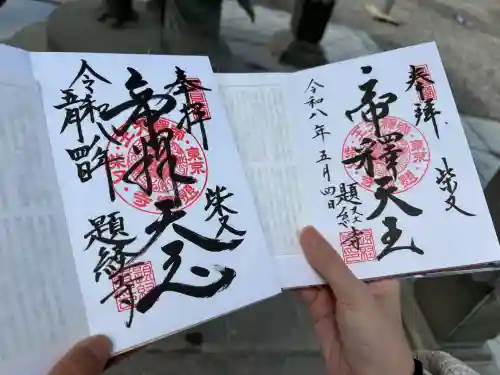 奉拝
柴又
帝釈天王
令和八年
五月四日
題経寺
奉拝
柴又
帝釋天王
令和八年五月四日
題経寺